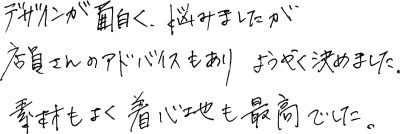 デザインが面白く、悩みましたが
店員さんのアドバイスもあり ようやく決めました。
素材もよく着心地も最高でした。